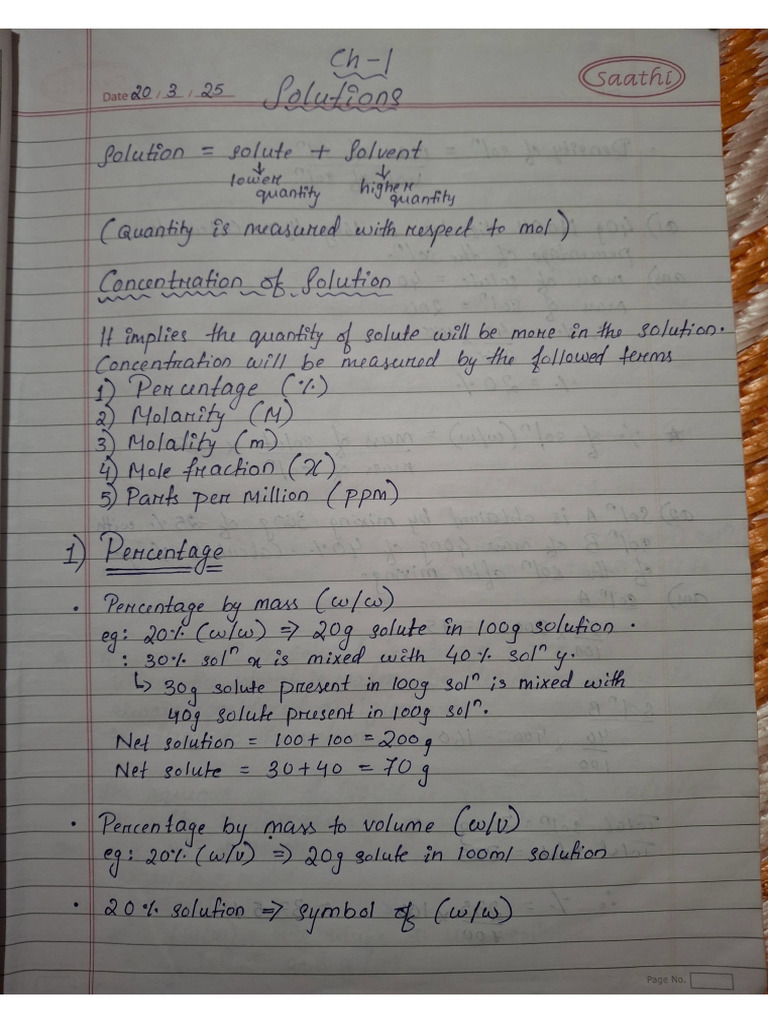 Ch-1
Saathi
Date 20/3/25
Solutions
Solution = solute + Solvent
↓ ↓
lower quantity higher quantity
(Quantity is measured with respect to mol)
Concentration of Solution
It implies the quantity of solute will be more in the solution.
Concentration will be measured by the followed terms
1) Percuntage (%)
2) Molarity (M)
3) Molality (m)
4) Mole fraction (X)
5) Parts per Million (ppm)
1) Percentage
• Percentage by mass (w/w)
eg: 20% (w/w) ⇒ 20g solute in 100g solution.
: 30% solⁿ x is mixed with 40% solⁿ y.
↳ 30g solute present in 100g solⁿ is mixed with
40g solute present in 100g solⁿ.
Net solution = 100+100 = 200g
Net solute = 30+40 = 70g
• Percentage by mass to volume (w/v)
eg: 20% (w/v) ⇒ 20g solute in 100ml solution
• 20% solution ⇒ symbol of (w/w)
Page No.